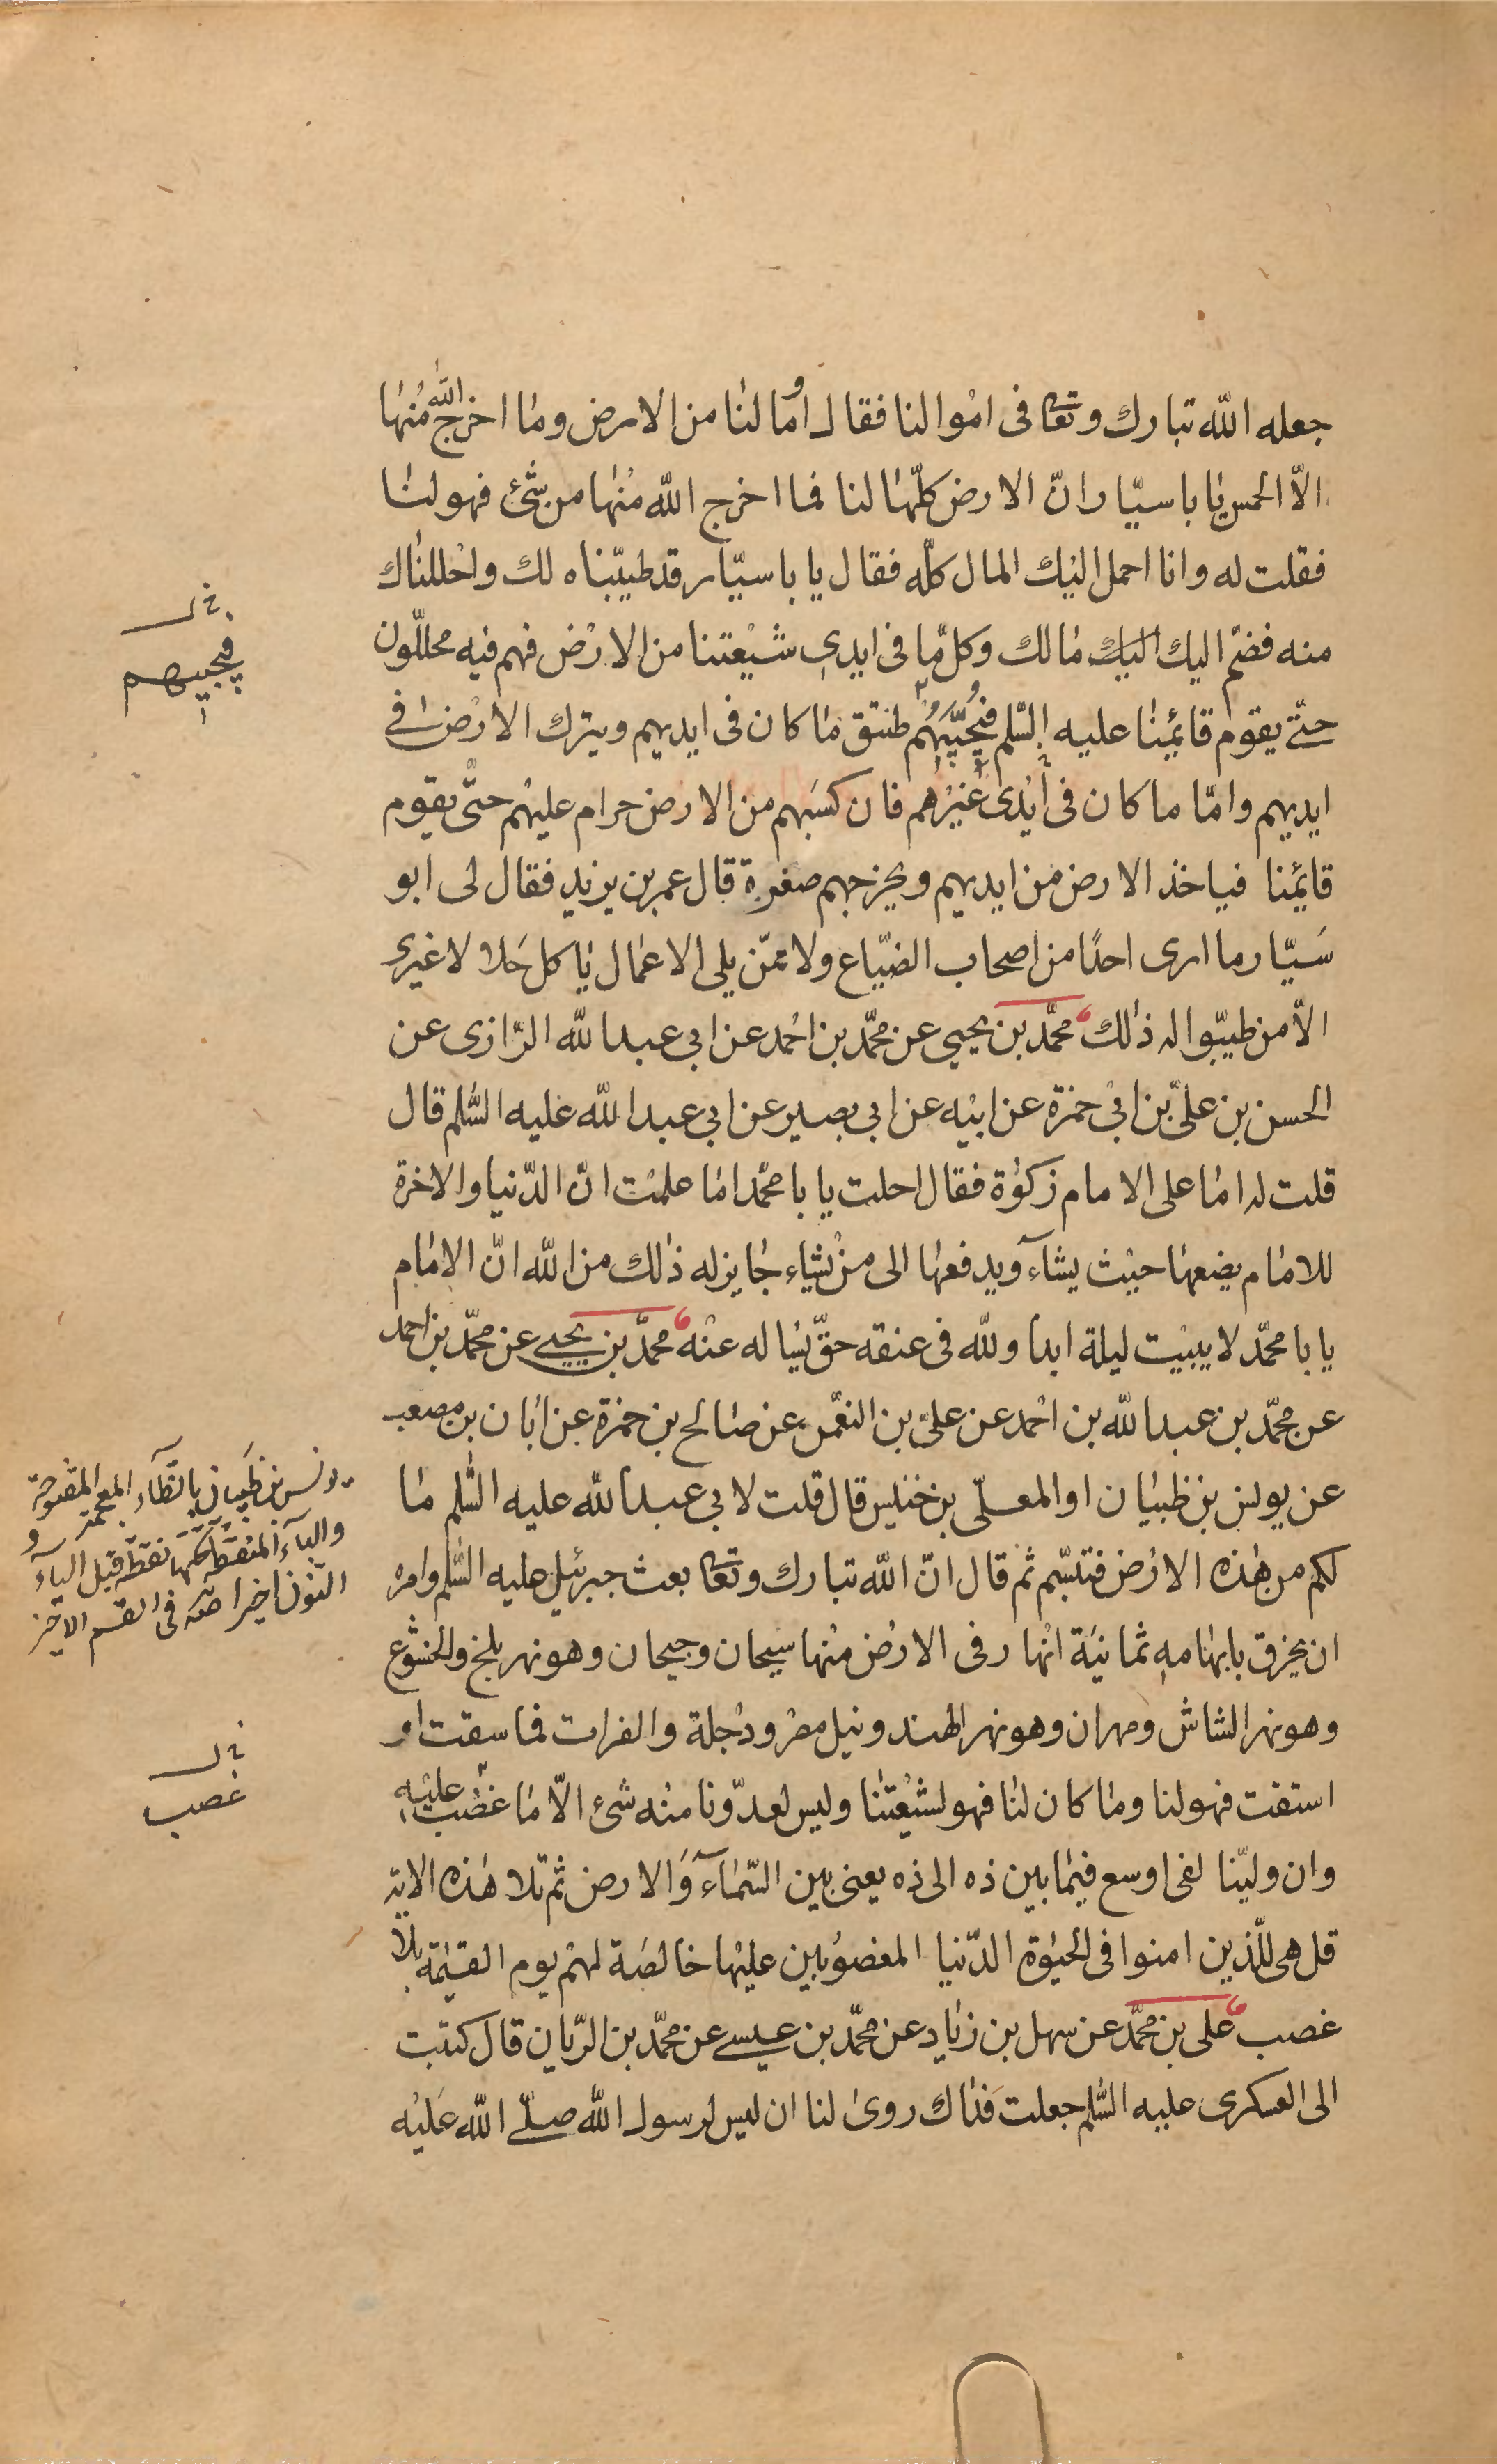 جعله الله تبارك وتعا فى اموالنا فقال أوما لنا من الارض وما اخرج الله منها
الّا الخمس يا باسيّار انّ الارض كلّها لنا فما اخرج الله منها من شئ فهو لنا
فقلت له وانا احمل اليك المال كلّه فقال يا باسيّار قد طيّبناه لك واحللناك
منه فضمّ اليك اليك مالك وكل ما فى ايدى شيعتنا من الارض فهم فيه محللّون
حتّى يقوم قائمنا عليه السّلم فيجبيهم طسق ما كان فى ايديهم ويترك الارض فى
ايديهم وامّا ما كان فى أيدى غيرهم فان كسبهم من الارض حرام عليهم حتّى يقوم
قائمنا فياخذ الارض من ايديهم ويخرجهم صغرة قال عمر بن يزيد فقال لى ابو
سَيّار ما ارى احدًا من اصحاب الضيّاع ولا ممّن يلى الاعمال ياكل حَلالا غيرى
الّا من طيّبوا له ذلك محمّد بن يحيى عن محمّد بن احمد عن ابى عبد الله الرّازى عن
الحسن بن علىّ بن ابى حمزة عن ابيه عن ابى بصير عن ابى عبد الله عليه السّلم قال
قلت له اما على الامام زكوة فقال احلت يا با محمّد اما علمت انّ الدّنيا والاخرة
للامام يضعها حيث يشآء ويدفعها الى من يشاء جايز له ذلك من الله انّ الامام
يا با محمّد لا يبيت ليلة ابدا ولله فى عنقه حقّ يساله عنه محمّد بن يحيى عن محمّد بن احمد
عن محمّد بن عبد الله بن احمد عن علىّ بن النعمن عن صالح بن حمزة عن ابان بن مصعب
عن يونس بن ظبيان او المعلّى بن خنيس قال قلت لابى عبد الله عليه السّلم ما
لكم من هذه الارض فتبسّم ثم قال انّ الله تبارك وتعا بعث جبرئيل عليه السّلم وامره
ان يخرق بابهامه ثمانية انهار فى الارض منها سيحان وجيحان وهو نهر بلخ والخشوع
وهو نهر الشاش ومهران وهو نهر الهند ونيل مصر ودجلة والفرات فما سقت او
استقت فهو لنا وما كان لنا فهو لشيعتنا وليس لعدّونا منه شئ الّا ما غصب عليه
وان وليّنا لفى اوسع فيما بين ذه الى ذه يعنى بين السّمآء وَالارض ثم تلا هذه الاية
قل هى للّذين امنوا فى الحيوة الدّنيا المغصوبين عليها خالصَة لهم يوم القيمة بلا
غصب على بن محمّد عن سهل بن زياد عن محمّد بن عيسى عن محمّد بن الريّان قال كتبت
الى العسكرى عليه السّلم جعلت فداك روى لنا ان ليس لرسول الله صلّى الله عليه
فيجبيهم
يونس بن ظبيان بالظآء المعجمة المفتوحة
والبآء المنقطة تحتها نقطة قبل اليآء و
النّون اخيرا صه فى القسم الاخر
غصب